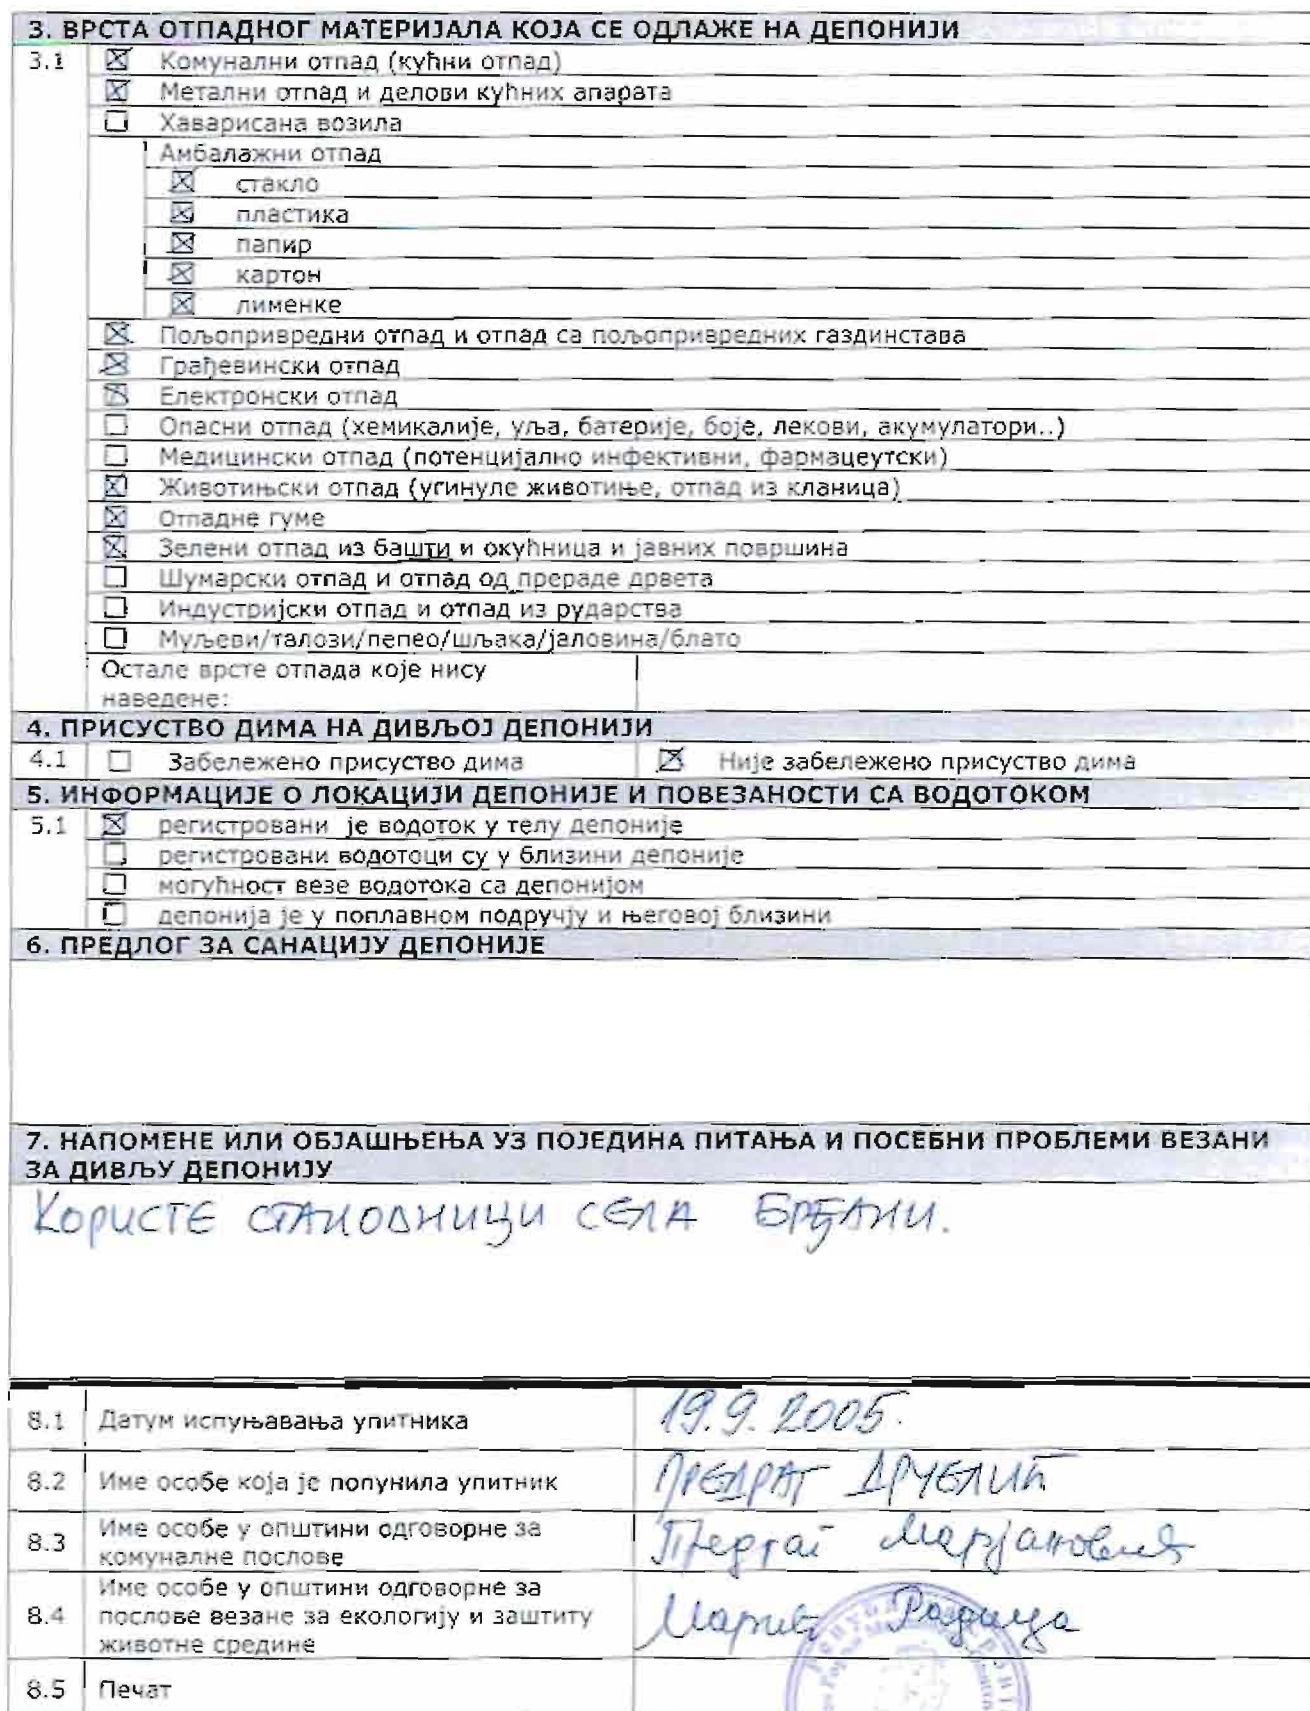 3. ВРСТА ОТПАДНОГ МАТЕРИЈАЛА КОЈА СЕ ОДЛАЖЕ НА ДЕПОНИЈИ
3.1 ☒ Комунални отпад (кућни отпад)
☒ Метални отпад и делови кућних апарата
☐ Хаварисана возила
Амбалажни отпад
☒ стакло
☒ пластика
☒ папир
☒ картон
☒ лименке
☒ Пољопривредни отпад и отпад са пољопривредних газдинстава
☒ Грађевински отпад
☒ Електронски отпад
☐ Опасни отпад (хемикалије, уља, батерије, боје, лекови, акумулатори..)
☐ Медицински отпад (потенцијално инфективни, фармацеутски)
☒ Животињски отпад (угинуле животиње, отпад из кланица)
☒ Отпадне гуме
☒ Зелени отпад из башти и окућница и јавних површина
☐ Шумарски отпад и отпад од прераде дрвета
☐ Индустријски отпад и отпад из рударства
☐ Муљеви/талози/пепео/шљака/јаловина/блато
Остале врсте отпада које нису
наведене:
4. ПРИСУСТВО ДИМА НА ДИВЉОЈ ДЕПОНИЈИ
4.1 ☐ Забележено присуство дима ☒ Није забележено присуство дима
5. ИНФОРМАЦИЈЕ О ЛОКАЦИЈИ ДЕПОНИЈЕ И ПОВЕЗАНОСТИ СА ВОДОТОКОМ
5.1 ☒ регистровани је водоток у телу депоније
☐ регистровани водотоци су у близини депоније
☐ могућност везе водотока са депонијом
☐ депонија је у поплавном подручју и његовој близини
6. ПРЕДЛОГ ЗА САНАЦИЈУ ДЕПОНИЈЕ
7. НАПОМЕНЕ ИЛИ ОБЈАШЊЕЊА УЗ ПОЈЕДИНА ПИТАЊА И ПОСЕБНИ ПРОБЛЕМИ ВЕЗАНИ
ЗА ДИВЉУ ДЕПОНИЈУ
КОРИСТЕ СТАНОВНИЦИ СЕЛА БРЂАНИ.
8.1 Датум испуњавања упитника 19.9.2005.
8.2 Име особе која је попунила упитник ПРЕДРАГ
8.3 Име особе у општини одговорне за
комуналне послове Предраг Марјановић
8.4 Име особе у општини одговорне за
послове везане за екологију и заштиту
животне средине Марић Радица
8.5 Печат